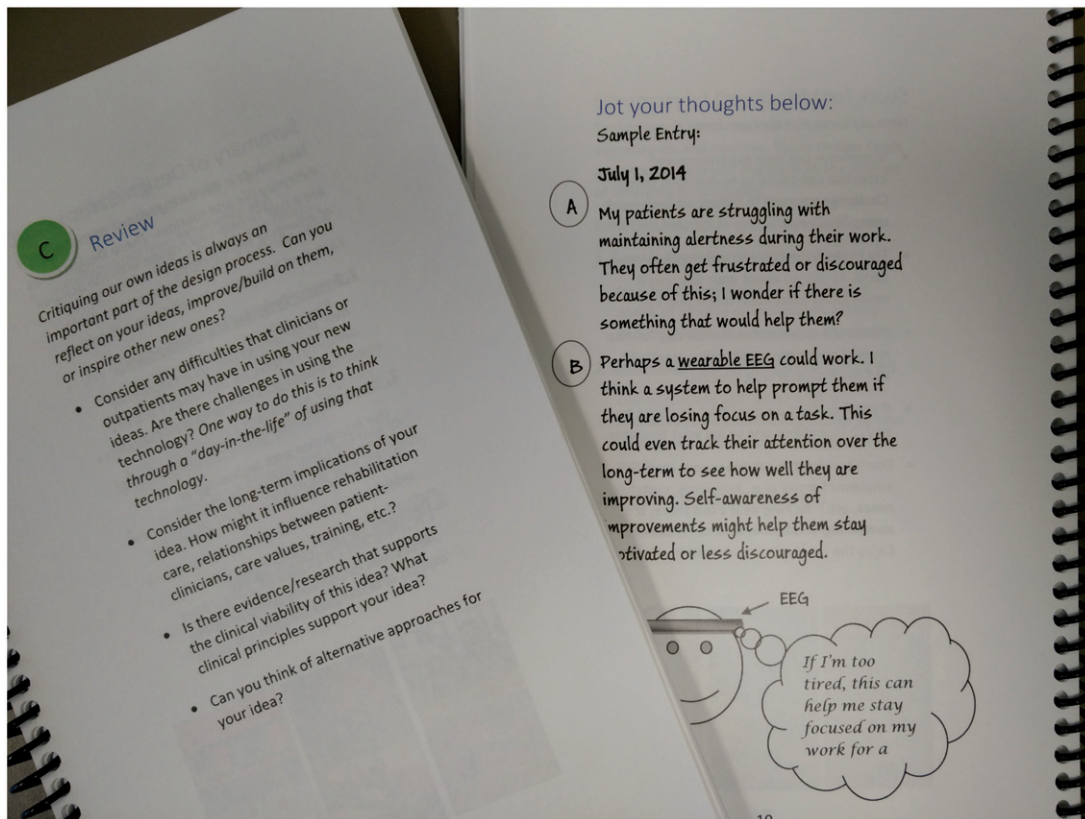 C
Review
Critiquing our own ideas is always an
important part of the design process. Can you
reflect on your ideas, improve/build on them,
or inspire other new ones?
• Consider any difficulties that clinicians or
outpatients may have in using your new
ideas. Are there challenges in using the
technology? One way to do this is to think
through a “day-in-the-life” of using that
technology.
• Consider the long-term implications of your
idea. How might it influence rehabilitation
care, relationships between patient-
clinicians, care values, training, etc.?
• Is there evidence/research that supports
the clinical viability of this idea? What
clinical principles support your idea?
• Can you think of alternative approaches for
your idea?
Jot your thoughts below:
Sample Entry:
July 1, 2014
A
My patients are struggling with
maintaining alertness during their work.
They often get frustrated or discouraged
because of this; I wonder if there is
something that would help them?
B
Perhaps a wearable EEG could work. I
think a system to help prompt them if
they are losing focus on a task. This
could even track their attention over the
long-term to see how well they are
improving. Self-awareness of
mprovements might help them stay
otivated or less discouraged.
EEG
If I'm too
tired, this can
help me stay
focused on my
work for a